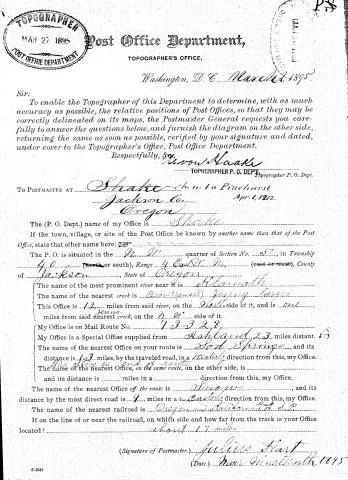 TOPOGRAPHER
MAR 27 1895
POST OFFICE DEPARTMENT
Post Office Department,
TOPOGRAPHER'S OFFICE,
Washington, D. C. March 2 1895
Sir:
To enable the Topographer of this Department to determine, with as much
accuracy as possible, the relative positions of Post Offices, so that they may be
correctly delineated on its maps, the Postmaster General requests you care-
fully to answer the questions below, and furnish the diagram on the other side,
returning the same as soon as possible, verified by your signature and dated,
under cover to the Topographer's Office, Post Office Department.
Respectfully, &c.
TOPOGRAPHER P. O. DEPT.
Topographer P. O. Dept.
TO POSTMASTER AT Shake to Pinehurst
Jackson Co. Apr. 1912
Oregon
The (P. O. Dept.) name of my Office is Shake
If the town, village, or site of the Post Office be known by another name than that of the Post
Office, state that other name here:
The P. O. is situated in the N W quarter of Section No. 5, in Township
40 (north or south), Range 4 East (east or west), County
of Jackson, State of Oregon
The name of the most prominent river near it is Klamath
The name of the nearest creek is Jenny
This Office is 12 miles from said river, on the side of it, and is
miles from said nearest creek, on the N W side of it.
My Office is on Mail Route No. 73328
My Office is Special supplied from Ashland 23 miles distant.
The name of the nearest Office on your route is Soda Springs, and its distance
is 13 miles, by the traveled road, in a direction from this, my Office.
The name of the nearest Office, on the same route, on the other side, is
and its distance is miles in a direction from this, my Office.
The name of the nearest Office off the route is, and its
distance by the most direct road is 9 miles in a direction from this, my Office.
The name of the nearest railroad is Oregon & California R. R.
If on the line of or near the railroad, on which side and how far from the track is your Office
located? about 17 miles
(Signature of Postmaster.) Julius Hart
(Date.) 1895